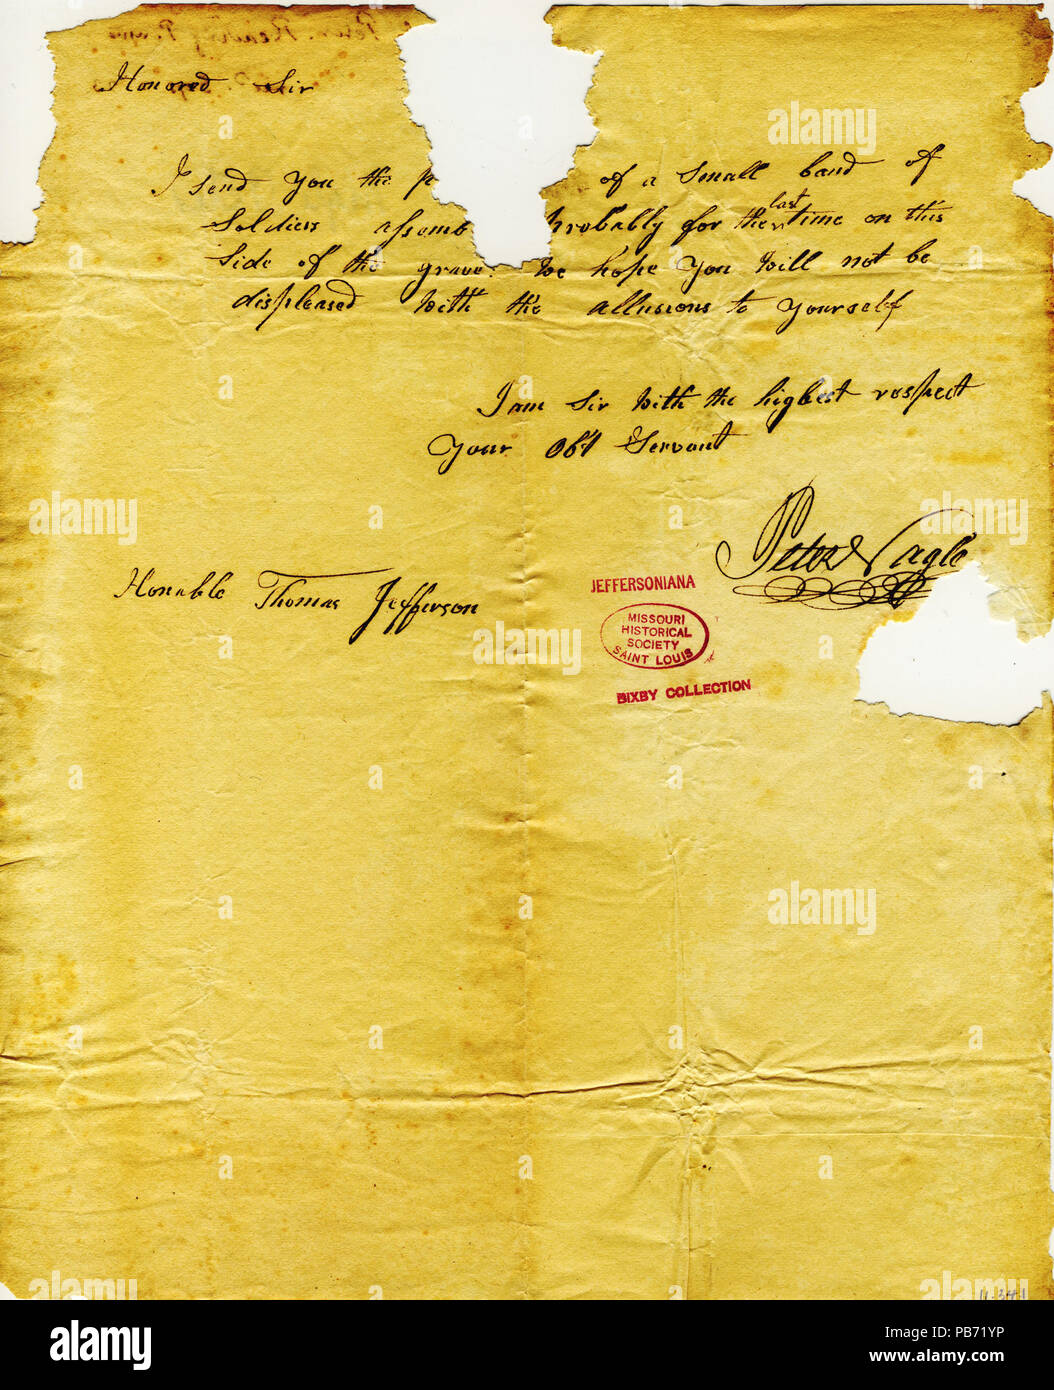 Honored Sir
I send you the p of a small band of
Soldiers assemb probably for the last time on this
Side of the grave. We hope you will not be
displeased with the allusions to yourself
I am Sir with the highest respect
Your Obt Servant
Peter Nagle
Honable Thomas Jefferson
JEFFERSONIANA
MISSOURI
HISTORICAL
SOCIETY
SAINT LOUIS
BIXBY COLLECTION
alamy
alamy
alamy
alamy
alamy
alamy
alamy
alamy
alamy
alamy
a
a
a
a
a
a
alamy
Image ID: PB71YP
www.alamy.com